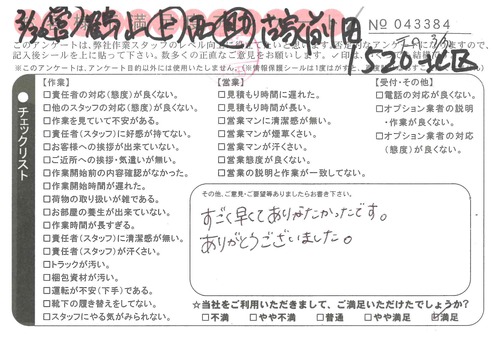 No 043384
このアンケートは、弊社作業スタッフのレベル向上に
記入後シールを上に貼って下さい。数多くの正直なご意見をお願いします。
※このアンケートは、アンケート目的以外には使用いたしません。
チェックリスト
【作業】
□責任者の対応(態度)が良くない。
□他のスタッフの対応(態度)が良くない。
□作業を見ていて不安がある。
□責任者(スタッフ)に好感が持てない。
□お客様への挨拶が出来ていない。
□ご近所への挨拶・気遣いが無い。
□作業開始前の内容確認がなかった。
□作業開始時間が遅れた。
□荷物の取り扱いが雑である。
□お部屋の養生が出来ていない。
□作業時間が長すぎる。
□責任者(スタッフ)に清潔感が無い。
□責任者(スタッフ)が汗くさい。
□トラックが汚い。
□梱包資材が汚い。
□運転が不安(下手)である。
□靴下の履き替えをしてない。
□スタッフにやる気がみられない。
【営業】
□見積もり時間に遅れた。
□見積もり時間が長い。
□営業マンに清潔感が無い。
□営業マンが煙草くさい。
□営業マンが汗くさい。
□営業態度が良くない。
□営業の説明と作業が一致してない。
【受付・その他】
□電話の対応が良くない。
□オプション業者の説明
・作業が良くない。
□オプション業者の対応
(態度)が良くない。
その他、ご意見・ご要望等ありましたらお書き下さい。
すごく早くてありがたかったです。
ありがとうございました。
☆当社をご利用いただきまして、ご満足いただけたでしょうか?
□不満 □やや不満 □普通 □やや満足 ☑満足